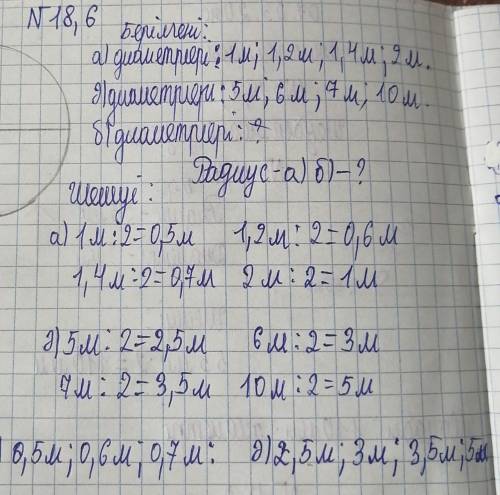 N18,6
Берілгені:
а) диаметриері: 1м; 1,2м; 1,4м; 2м.
ә) диаметриери: 5м; 6м; 7м; 10м.
б) диаметриері: ?
Радиус - а) б) - ?
Шешуі:
а) 1м : 2 = 0,5м 1,2м : 2 = 0,6м
1,4м : 2 = 0,7м 2м : 2 = 1м
ә) 5м : 2 = 2,5м 6м : 2 = 3м
7м : 2 = 3,5м 10м : 2 = 5м
) 0,5м; 0,6м; 0,7м: ә) 2,5м; 3м; 3,5м; 5м